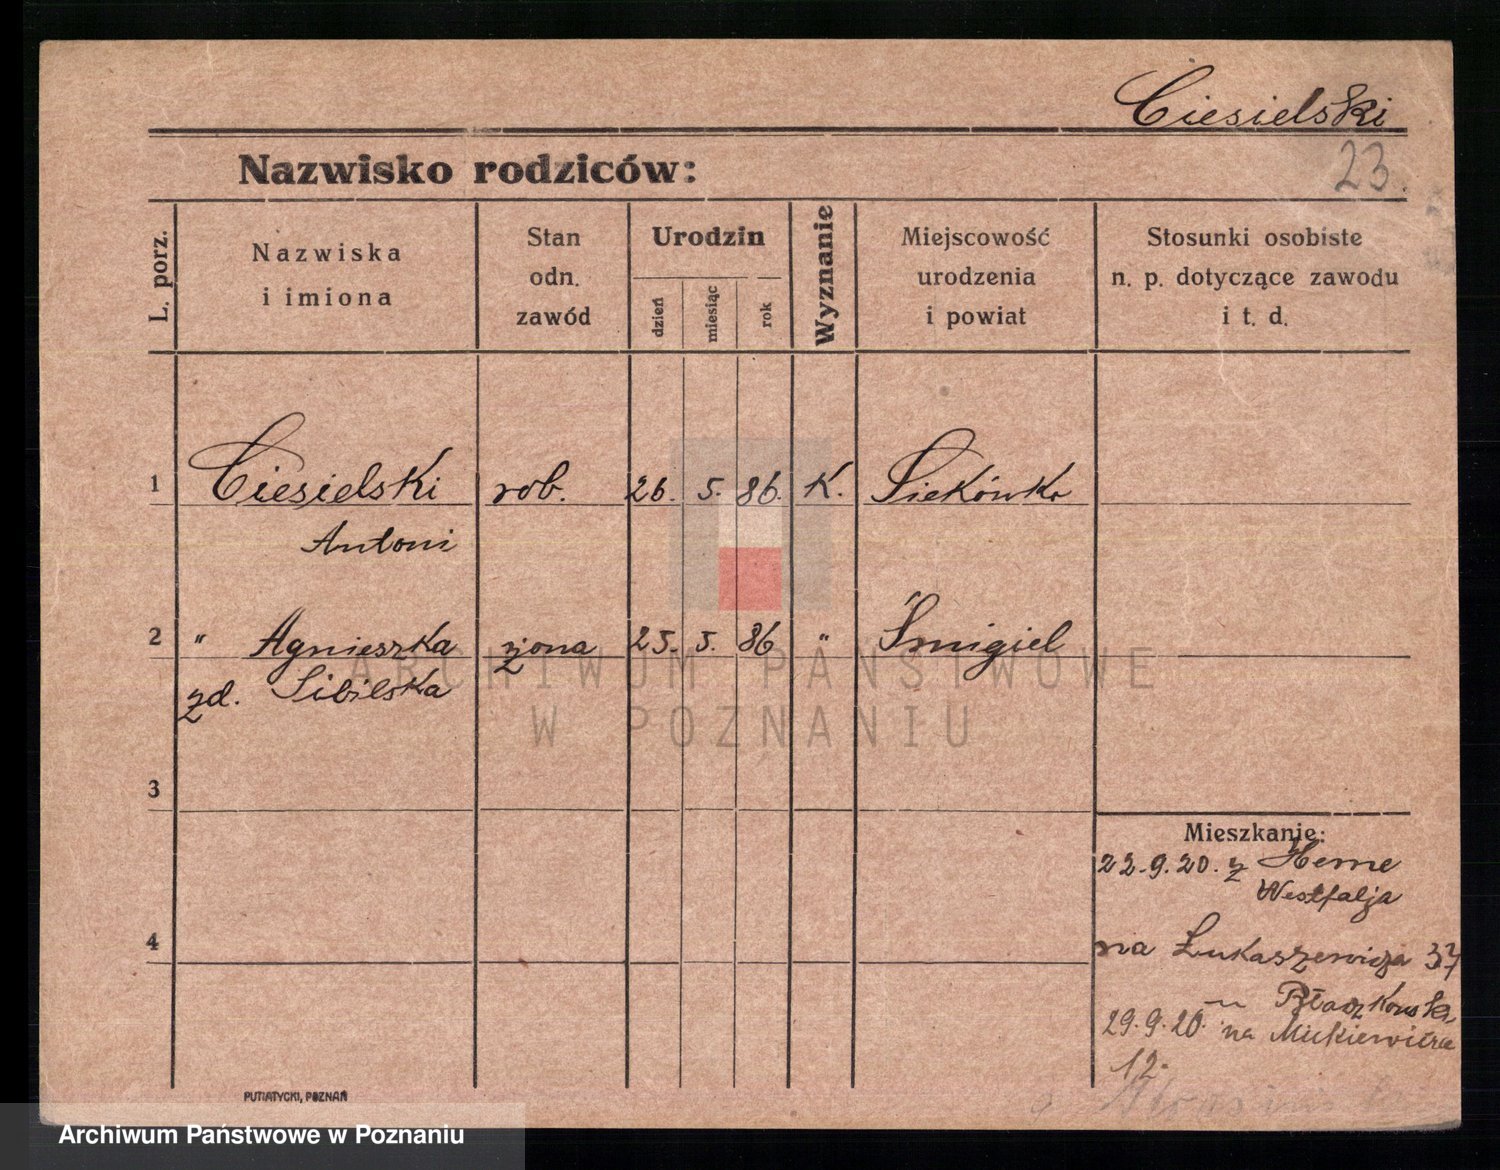 Ciesielski
Nazwisko rodziców:
23.
L. porz.
Nazwiska
i imiona
Stan
odn.
zawód
Urodzin
dzień
miesiąc
rok
Wyznanie
Miejscowość
urodzenia
i powiat
Stosunki osobiste
n. p. dotyczące zawodu
i t. d.
1 Ciesielski rob. 26. 5. 86. K. Siekówko
Antoni
2 " Agnieszka żona 25. 5. 86 " Śmigiel
zd. Sibilska
ARCHIWUM PAŃSTWOWE
W POZNANIU
3
Mieszkanie:
22.9.20. z Herne
Westfalja
4
na Łukaszewicza 37
u Błaczkowski
29.9.20. na Mickiewicza
12.
PUTIATYCKI, POZNAŃ
Archiwum Państwowe w Poznaniu